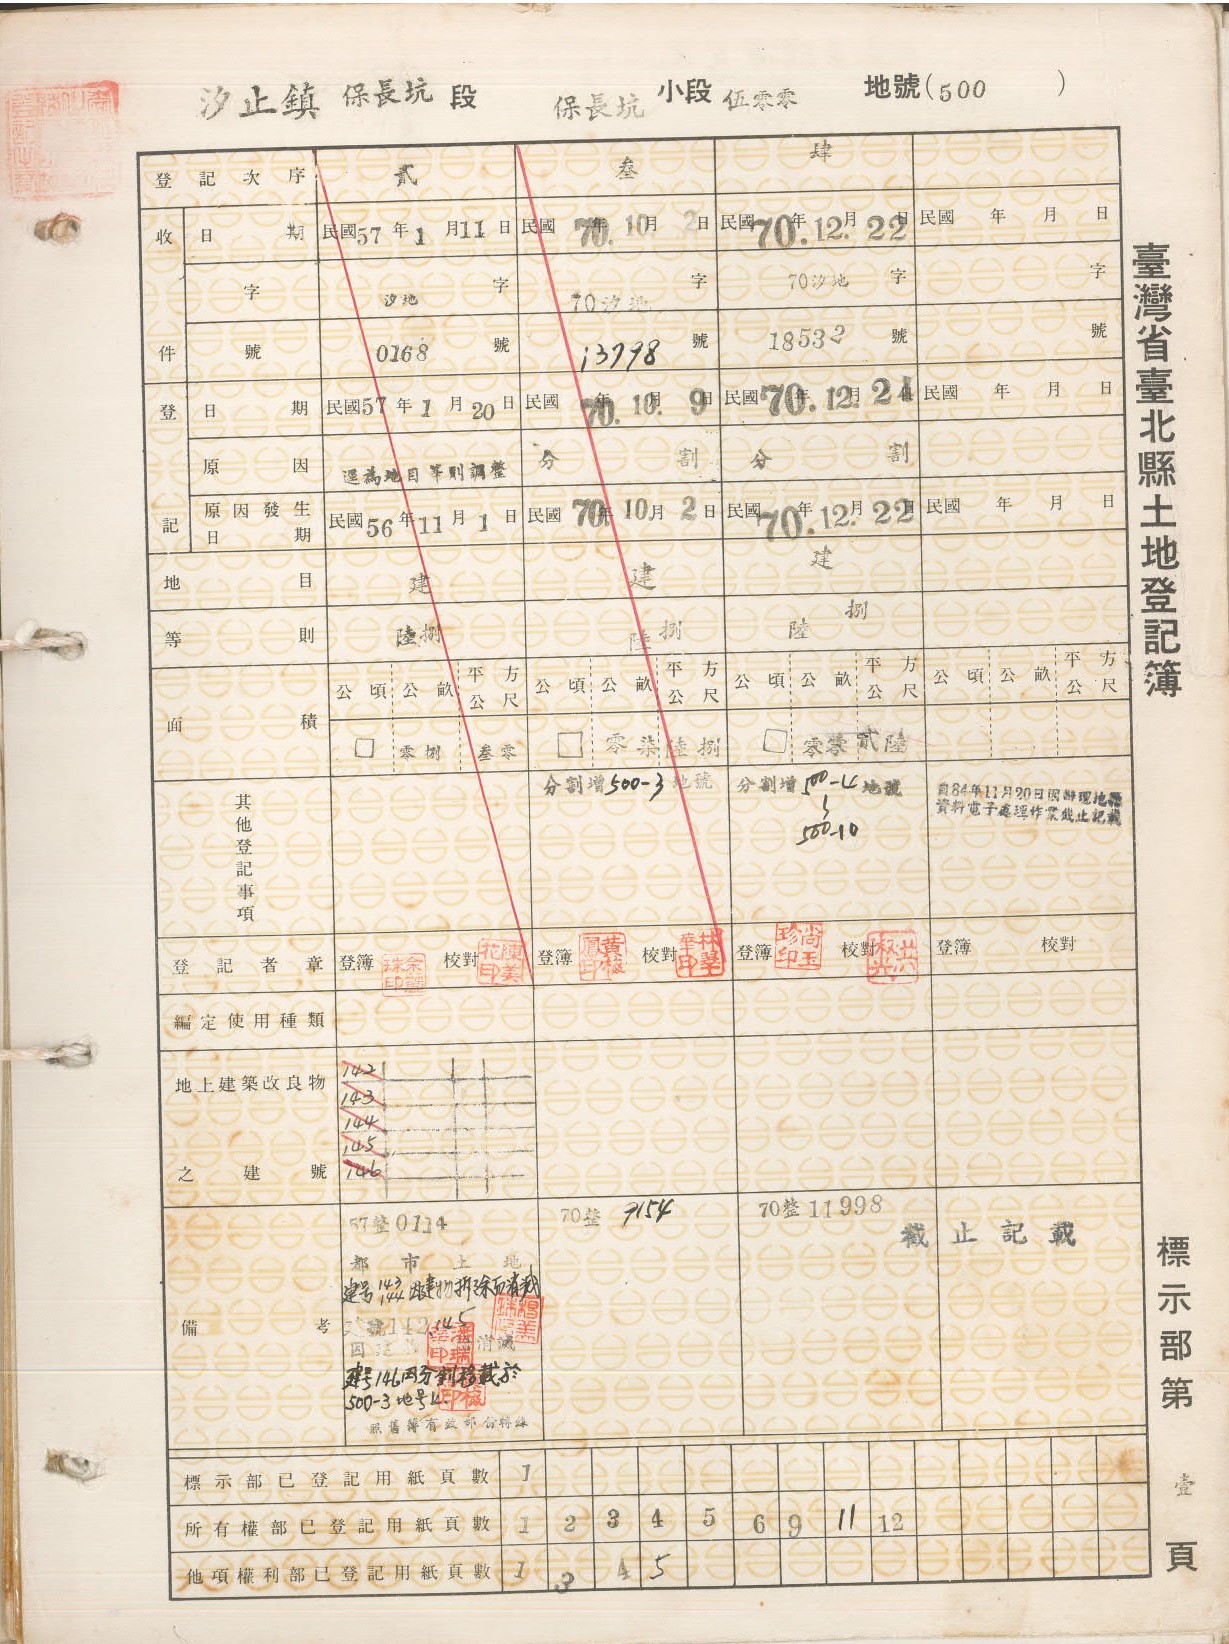 汐止鎮 保長坑 段 保長坑 小段 伍零零 地號(500 )
臺灣省臺北縣土地登記簿
標示部第 壹 頁
登記次序 貳 叁 肆
收件 日期 民國57年1月11日 民國70.年10.月2日 民國70.年12.月22日 民國 年 月 日
字 汐地字 70汐地字 70汐地字 字
號 0168號 13798號 18532號 號
登記 日期 民國57年1月20日 民國70.年10.月9日 民國70.年12.月24日 民國 年 月 日
原因 逕為地目等則調整 分割 分割
原因發生日期 民國56年11月1日 民國70年10月2日 民國70.年12.月22日 民國 年 月 日
地目 建 建 建
等則 陸捌 陸捌 陸捌
面積 公頃 公畝 平方公尺 公頃 公畝 平方公尺 公頃 公畝 平方公尺 公頃 公畝 平方公尺
零捌 叁零 零柒 陸捌 零零 貳陸
其他登記事項 分割增500-3地號 分割增500-4地號
500-10
自84年11月20日因辦理地籍
資料電子處理作業截止記載
登記者章 登簿 校對 陳美花印 登簿 校對 林翠華印 登簿 尚玉珍印 校對 登簿 校對
編定使用種類
地上建築改良物之建號
142
143
144
145
146
備考 57整0114 70整9154 70整11998
截止記載
都市土地
建号143 144因建物拆除而省載
145
消滅
建号146因分割移載於
500-3地号
照舊簿有效部份轉錄
標示部已登記用紙頁數 1
所有權部已登記用紙頁數 1 2 3 4 5 6 9 11 12
他項權利部已登記用紙頁數 1 3 4 5